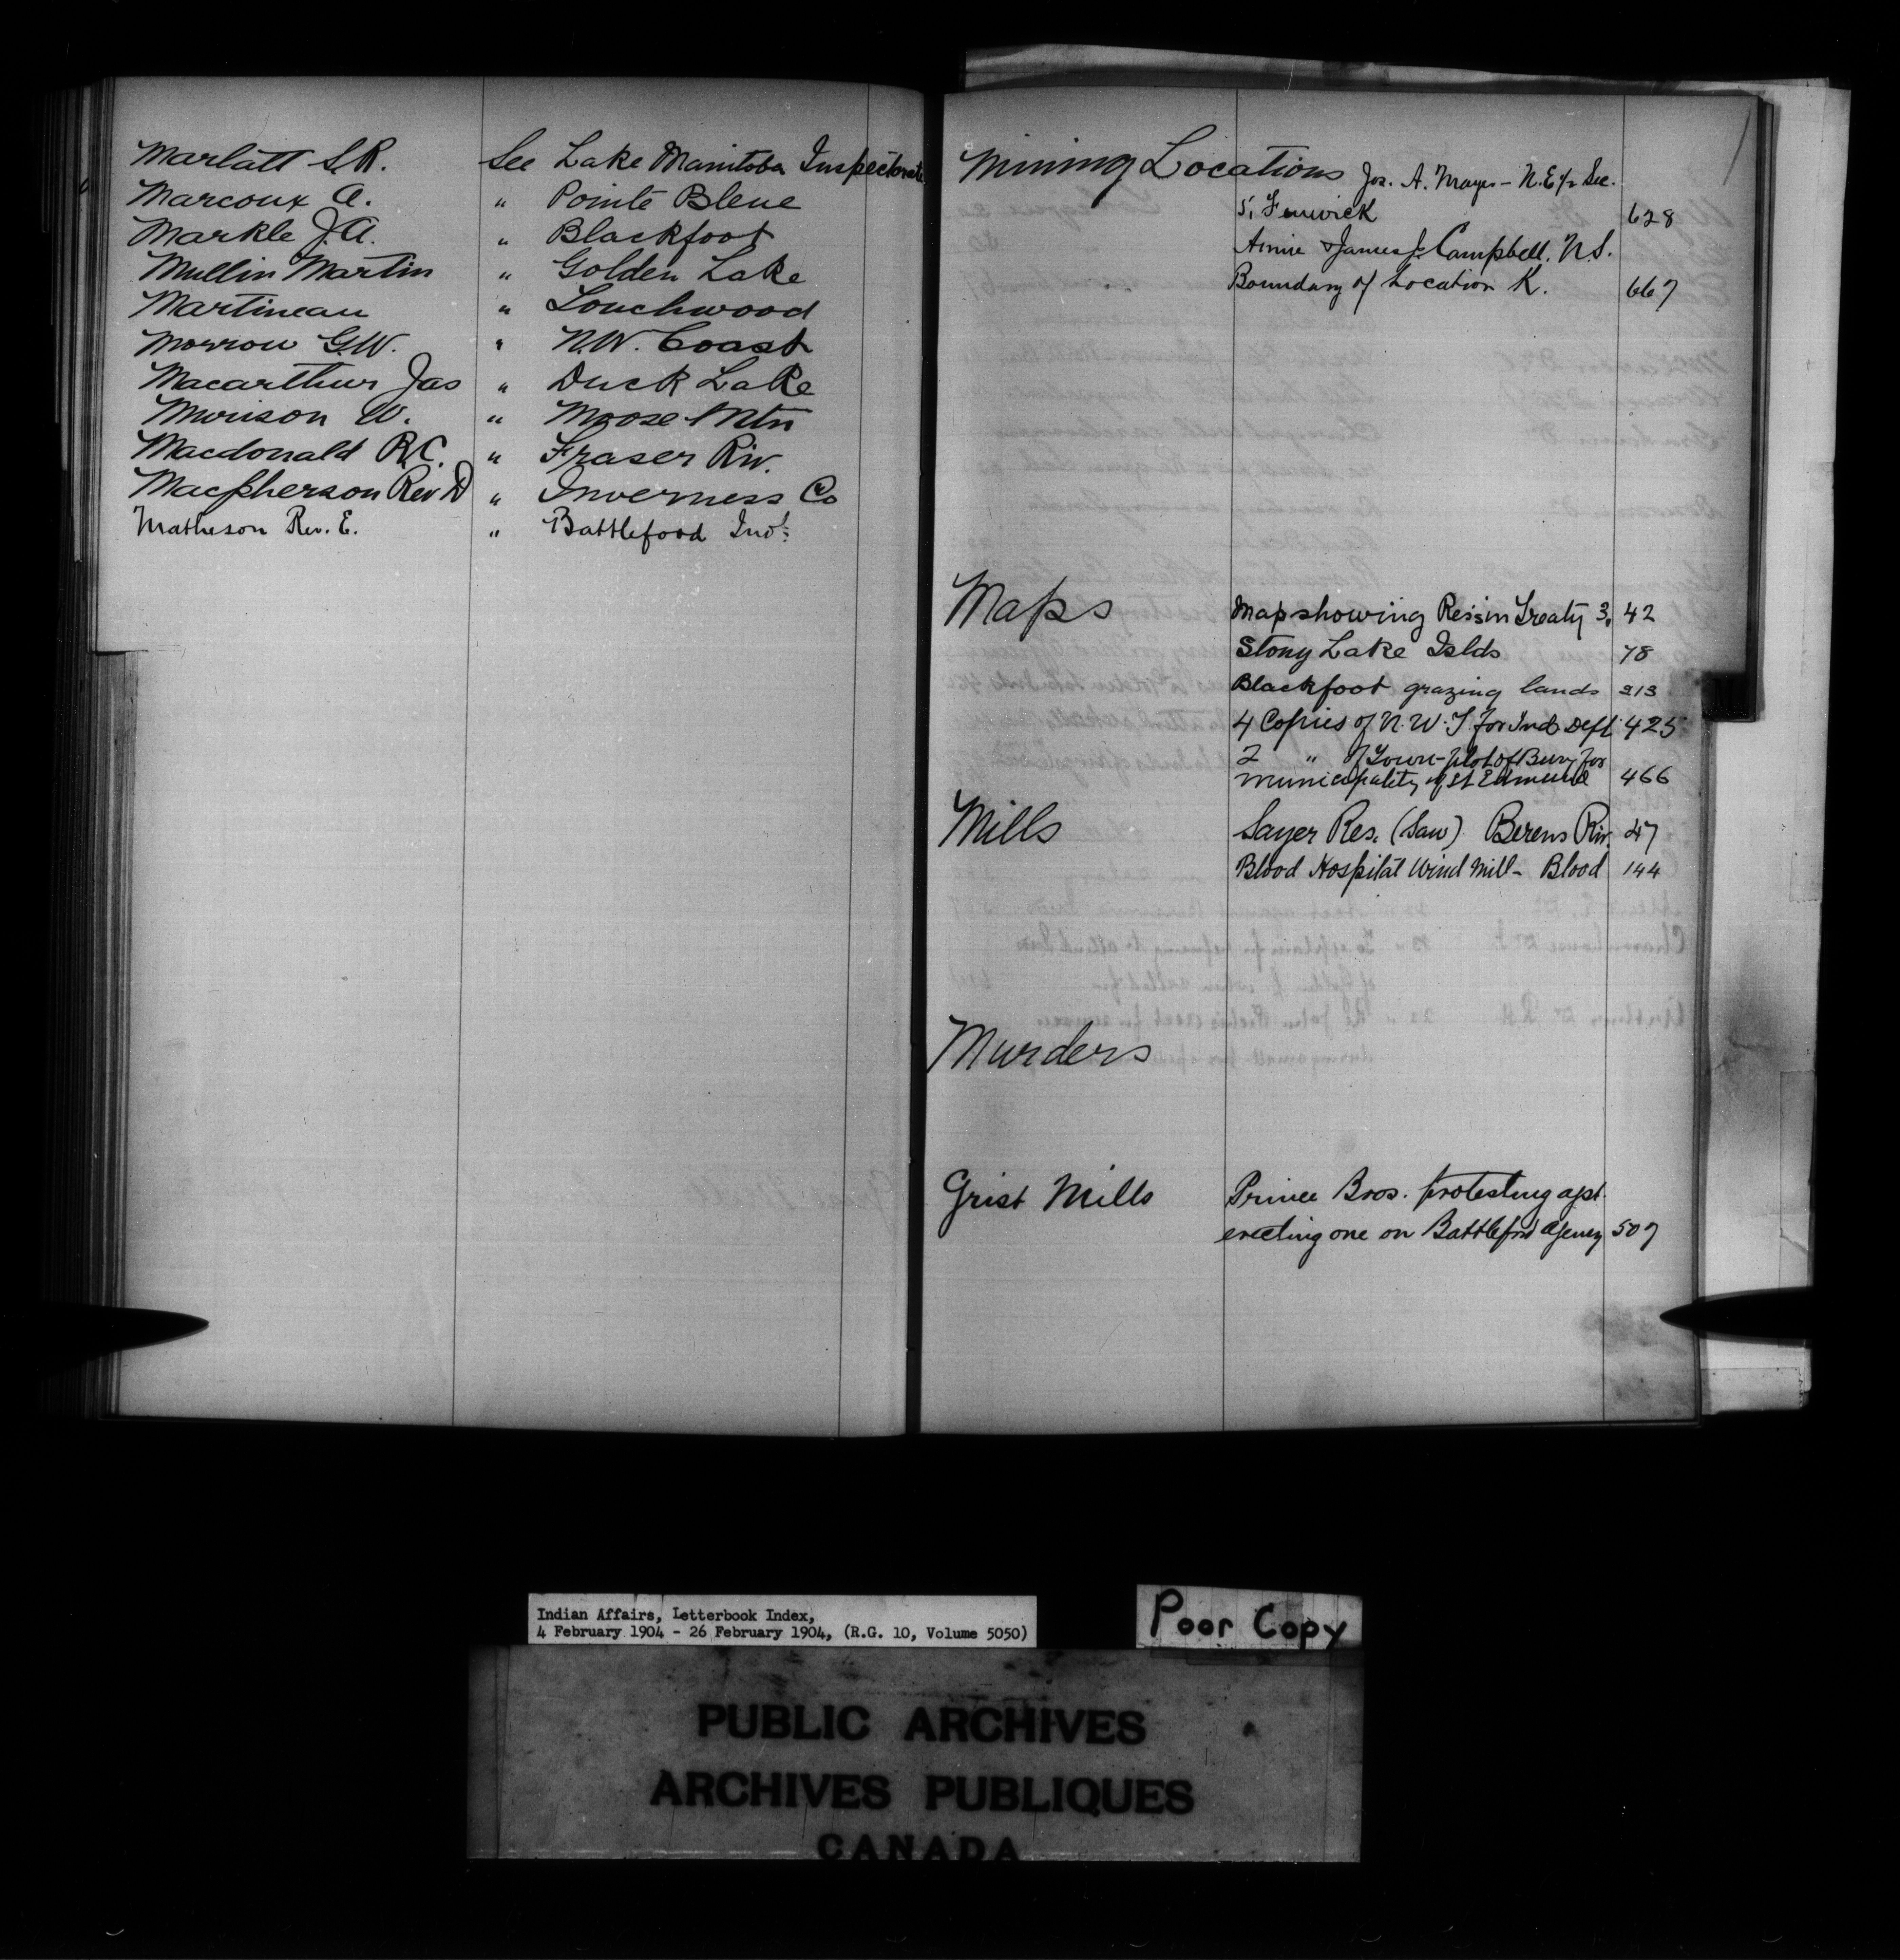 Marlatt S.R. See Lake Manitoba Inspectorate
Marcoux A. " Pointe Bleue
Markle J.A. " Blackfoot
Mullin Martin " Golden Lake
Martineau " Touchwood
Morrow G.W. " N.W. Coast
Macarthur Jas " Duck Lake
Murison W. " Moose Mtn
Macdonald R.C. " Fraser Riv.
Macpherson Rev D " Inverness Co
Matheson Rev. E. " Battleford
Mining Locations Jos. A. Mayes - N.E 1/2 Sec.
5, Fenwick 628
Annie & James J. Campbell. N.S.
Boundary of Location K. 667
Maps Map showing Res's in Treaty 3. 42
Stony Lake Islds 78
Blackfoot grazing lands 313
4 Copies of N.W.T. for Ind. Dept. 425
2 " of Town-plot of Bury for
municipality of St Edmund 466
Mills Sayer Res. (Saw) Berens Riv. 47
Blood Hospital Wind Mill - Blood 144
Murders
Grist Mills Prince Bros. protesting agst.
erecting one on Battleford Agency 507
Indian Affairs, Letterbook Index,
4 February 1904 - 26 February 1904, (R.G. 10, Volume 5050)
Poor Copy
PUBLIC ARCHIVES
ARCHIVES PUBLIQUES
CANADA